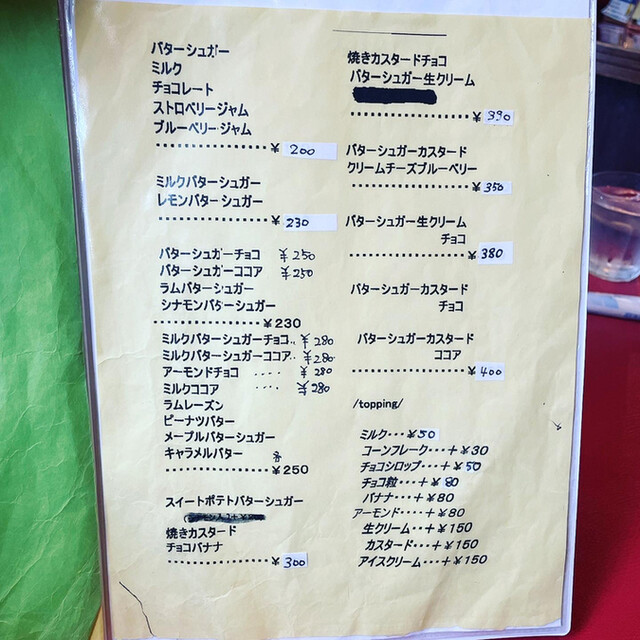 バターシュガー
ミルク
チョコレート
ストロベリージャム
ブルーベリージャム
‥‥‥‥‥‥‥‥¥ 200
ミルクバターシュガー
レモンバターシュガー
‥‥‥‥‥‥‥‥¥ 230
バターシュガーチョコ ¥250
バターシュガーココア ¥250
ラムバターシュガー
シナモンバターシュガー
‥‥‥‥‥‥‥‥¥230
ミルクバターシュガーチョコ‥ ¥280
ミルクバターシュガーココア‥ ¥280
アーモンドチョコ ‥‥ ¥280
ミルクココア ‥‥ ¥280
ラムレーズン
ピーナツバター
メープルバターシュガー
キャラメルバター
‥‥‥‥‥‥‥‥¥250
スイートポテトバターシュガー
焼きカスタード
チョコバナナ
‥‥‥‥‥‥‥‥¥ 300
焼きカスタードチョコ
バターシュガー生クリーム
‥‥‥‥‥‥‥‥¥ 390
バターシュガーカスタード
クリームチーズブルーベリー
‥‥‥‥‥‥‥‥¥ 350
バターシュガー生クリーム
チョコ
‥‥‥‥‥‥‥‥¥ 380
バターシュガーカスタード
チョコ
バターシュガーカスタード
ココア
‥‥‥‥‥‥‥‥¥ 400
/topping/
ミルク・・・¥50
コーンフレーク・・・+¥30
チョコシロップ・・・+¥50
チョコ粒・・・+¥80
バナナ・・・+¥80
アーモンド・・・・+¥80
生クリーム・・・+¥150
カスタード・・・+¥150
アイスクリーム・・・+¥150